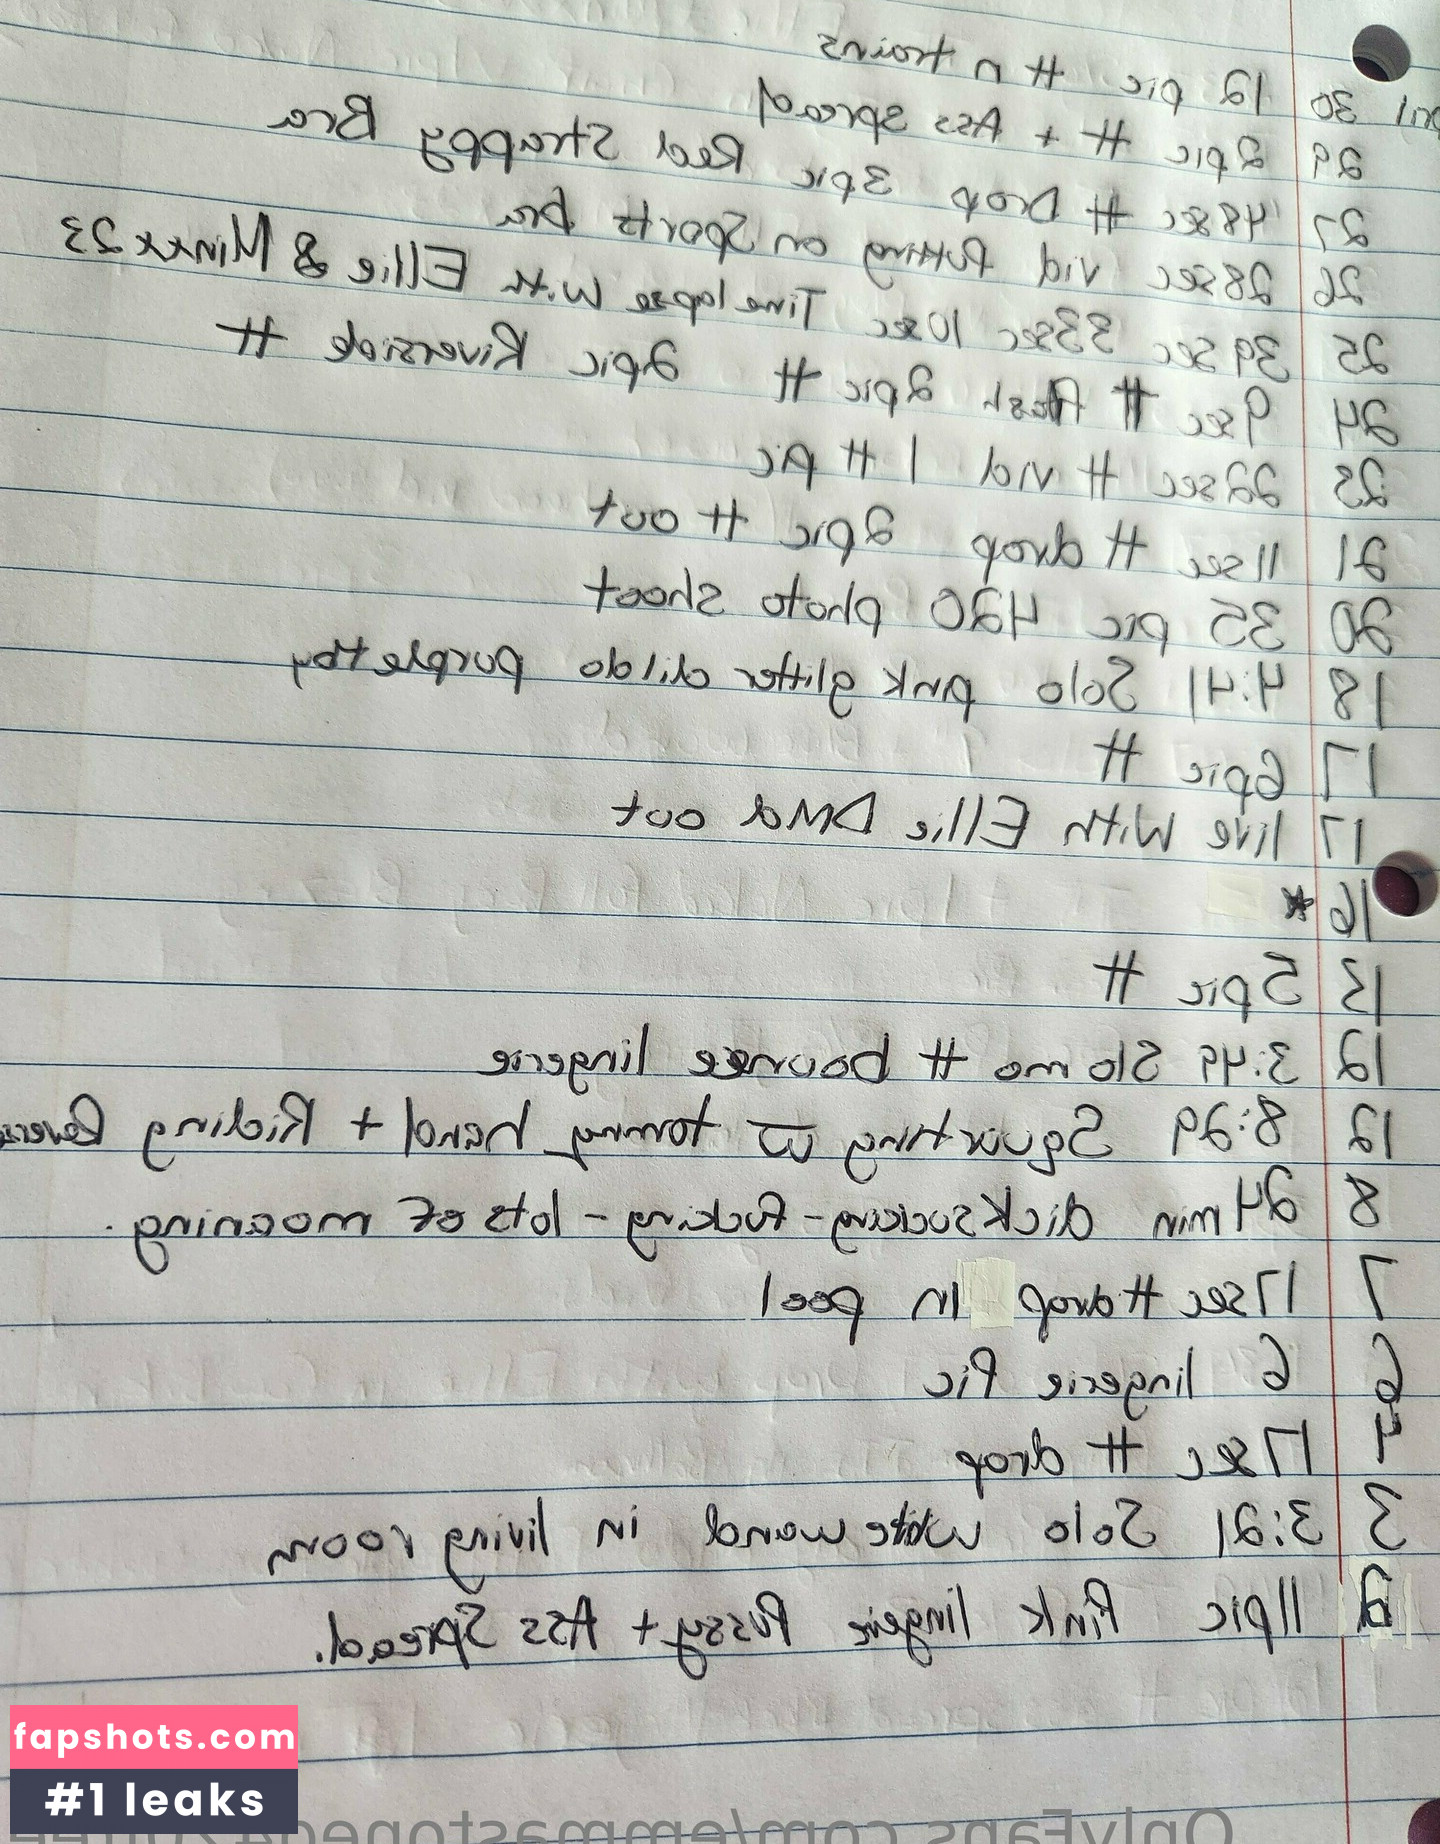 April 30 12 pic # n trains
29 2pic # + Ass Spread
27 48sec # Drop 3pic Red Strappy Bra
26 28sec vid Putting on Sports bra
25 39sec 33sec 10sec Timelapse With Ellie & Minxx23
24 9sec # flash 2pic # 2pic Riverside #
23 22sec # vid 1 # pic
21 11sec # drop 2pic # out
20 35 pic 420 photo shoot
18 4:41 Solo pink glitter dildo purple toy
17 6pic #
17 live With Ellie DMd out
16 *
13 5pic #
12 3:49 Slo mo # bounce lingerie
12 8:29 Squirting w tommy hand + Riding Revers
8 24min dicksucking-fucking-lots of moaning.
7 17sec #drop in pool
6 6 lingerie Pic
4 17sec # drop
3 3:21 Solo white wand in living room
2 11pic Pink lingerie Pussy + Ass Spread.
fapshots.com
#1 leaks